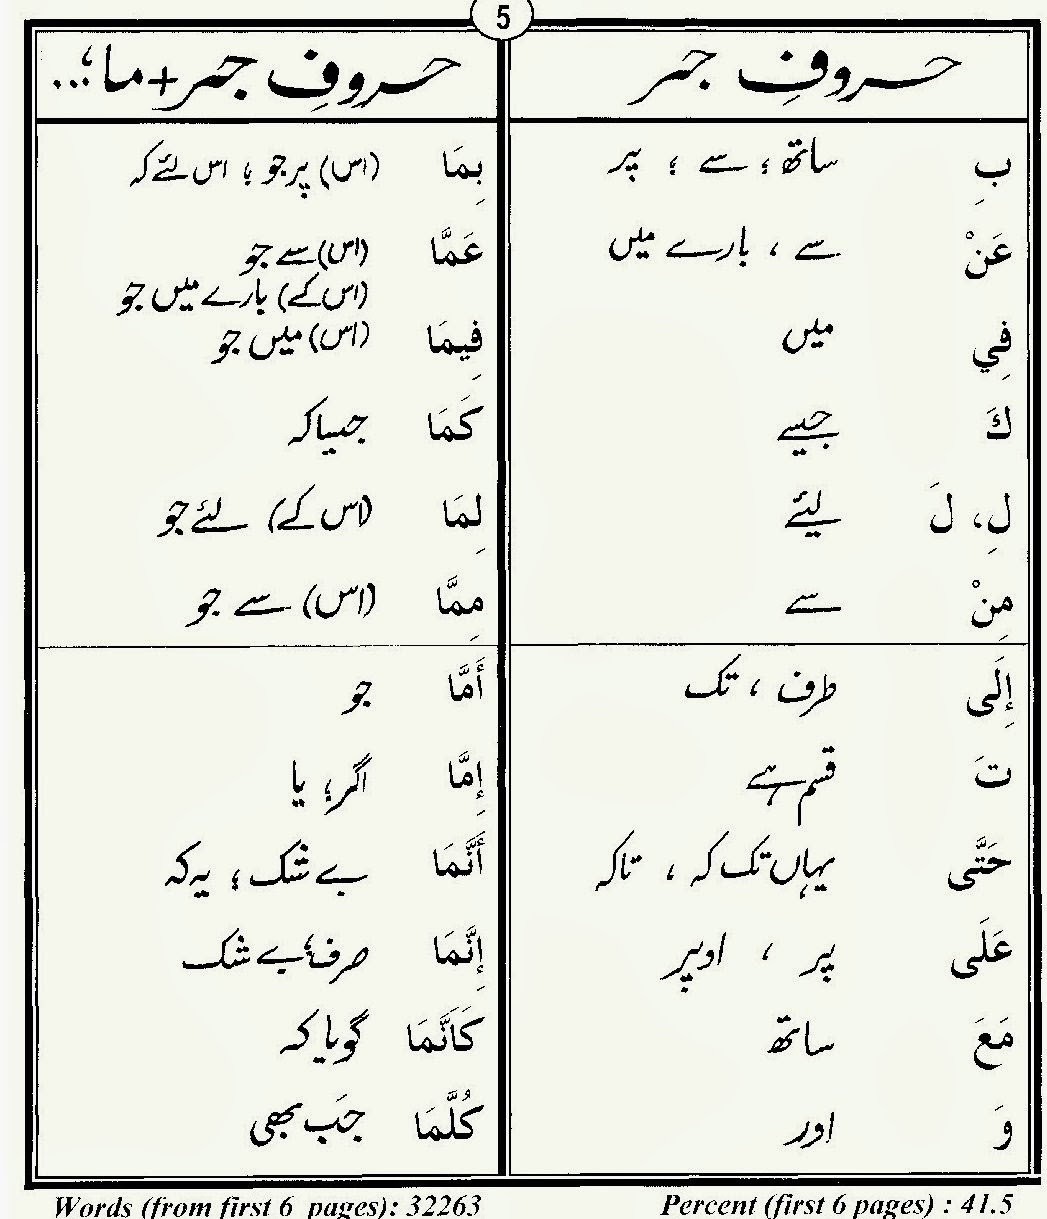 5
حروفِ جر
حروفِ جر+ما؛...
بِ ساتھ؛ سے ؛ پر
بِمَا (اس) پر جو ؛ اس لئے کہ
عَنْ سے ، بارے میں
عَمَّا (اس) سے جو
(اس کے) بارے میں جو
فِي میں
فِيمَا (اس) میں جو
كَ جیسے
كَمَا جیسا کہ
لِ، لَ لیئے
لِمَا (اس کے) لئے جو
مِنْ سے
مِمَّا (اس) سے جو
إِلَى طرف ، تک
أَمَّا جو
تَ قسم ہے
إِمَّا اگر؛ یا
حَتَّى یہاں تک کہ ، تاکہ
أَنَّمَا بے شک ؛ یہ کہ
عَلَى پر ، اوپر
إِنَّمَا صرف؛ بے شک
مَعَ ساتھ
كَأَنَّمَا گویا کہ
وَ اور
كُلَّمَا جب بھی
Words (from first 6 pages): 32263
Percent (first 6 pages) : 41.5